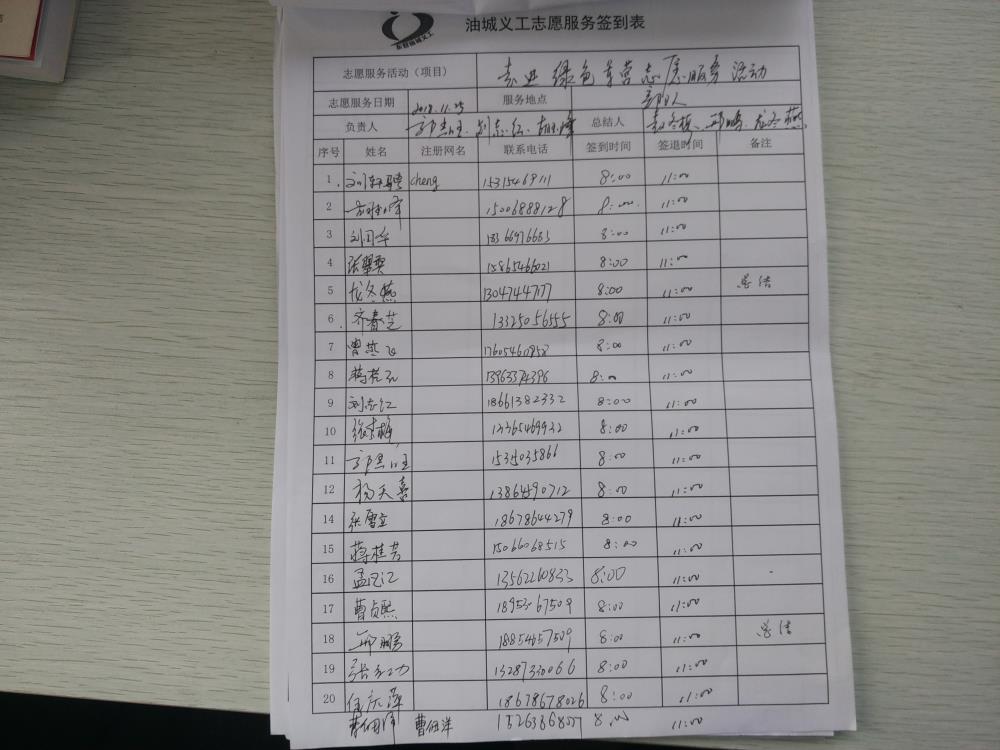 东营油城义工
油城义工志愿服务签到表
志愿服务活动（项目） 绿色 志愿服务活动
志愿服务日期 2018.11.25 服务地点
负责人 刘志红 总结人 邱鹏、龙冬燕
序号 姓名 注册网名 联系电话 签到时间 签退时间 备注
1 cheng 15315469111 8:00 11:00
2 15006888128 8:00 11:00
3 刘国华 18366976683 8:00 11:00
4 张翠英 15865466021 8:00 11:00
5 龙冬燕 13047447177 8:00 11:00 总结
6 齐春芝 13325056555 8:00 11:00
7 曹燕飞 17605460958 8:00 11:00
8 13963374396 8:00 11:00
9 刘志红 18661382332 8:00 11:00
10 13365469932 8:00 11:00
11 8:00 11:00
12 杨天喜 13864590712 8:00 11:00
14 张雪立 18678644279 8:00 11:00
15 蒋桂芳 15066068515 8:00 11:00
16 13562260833 8:00 11:00
17 曹贞熙 8:00 11:00
18 邱鹏 18854657509 8:00 11:00 总结
19 13287330066 8:00 11:00
20 任庆萍 18678678026 8:00 11:00
曹佃洋 曹佃洋 8:00 11:00